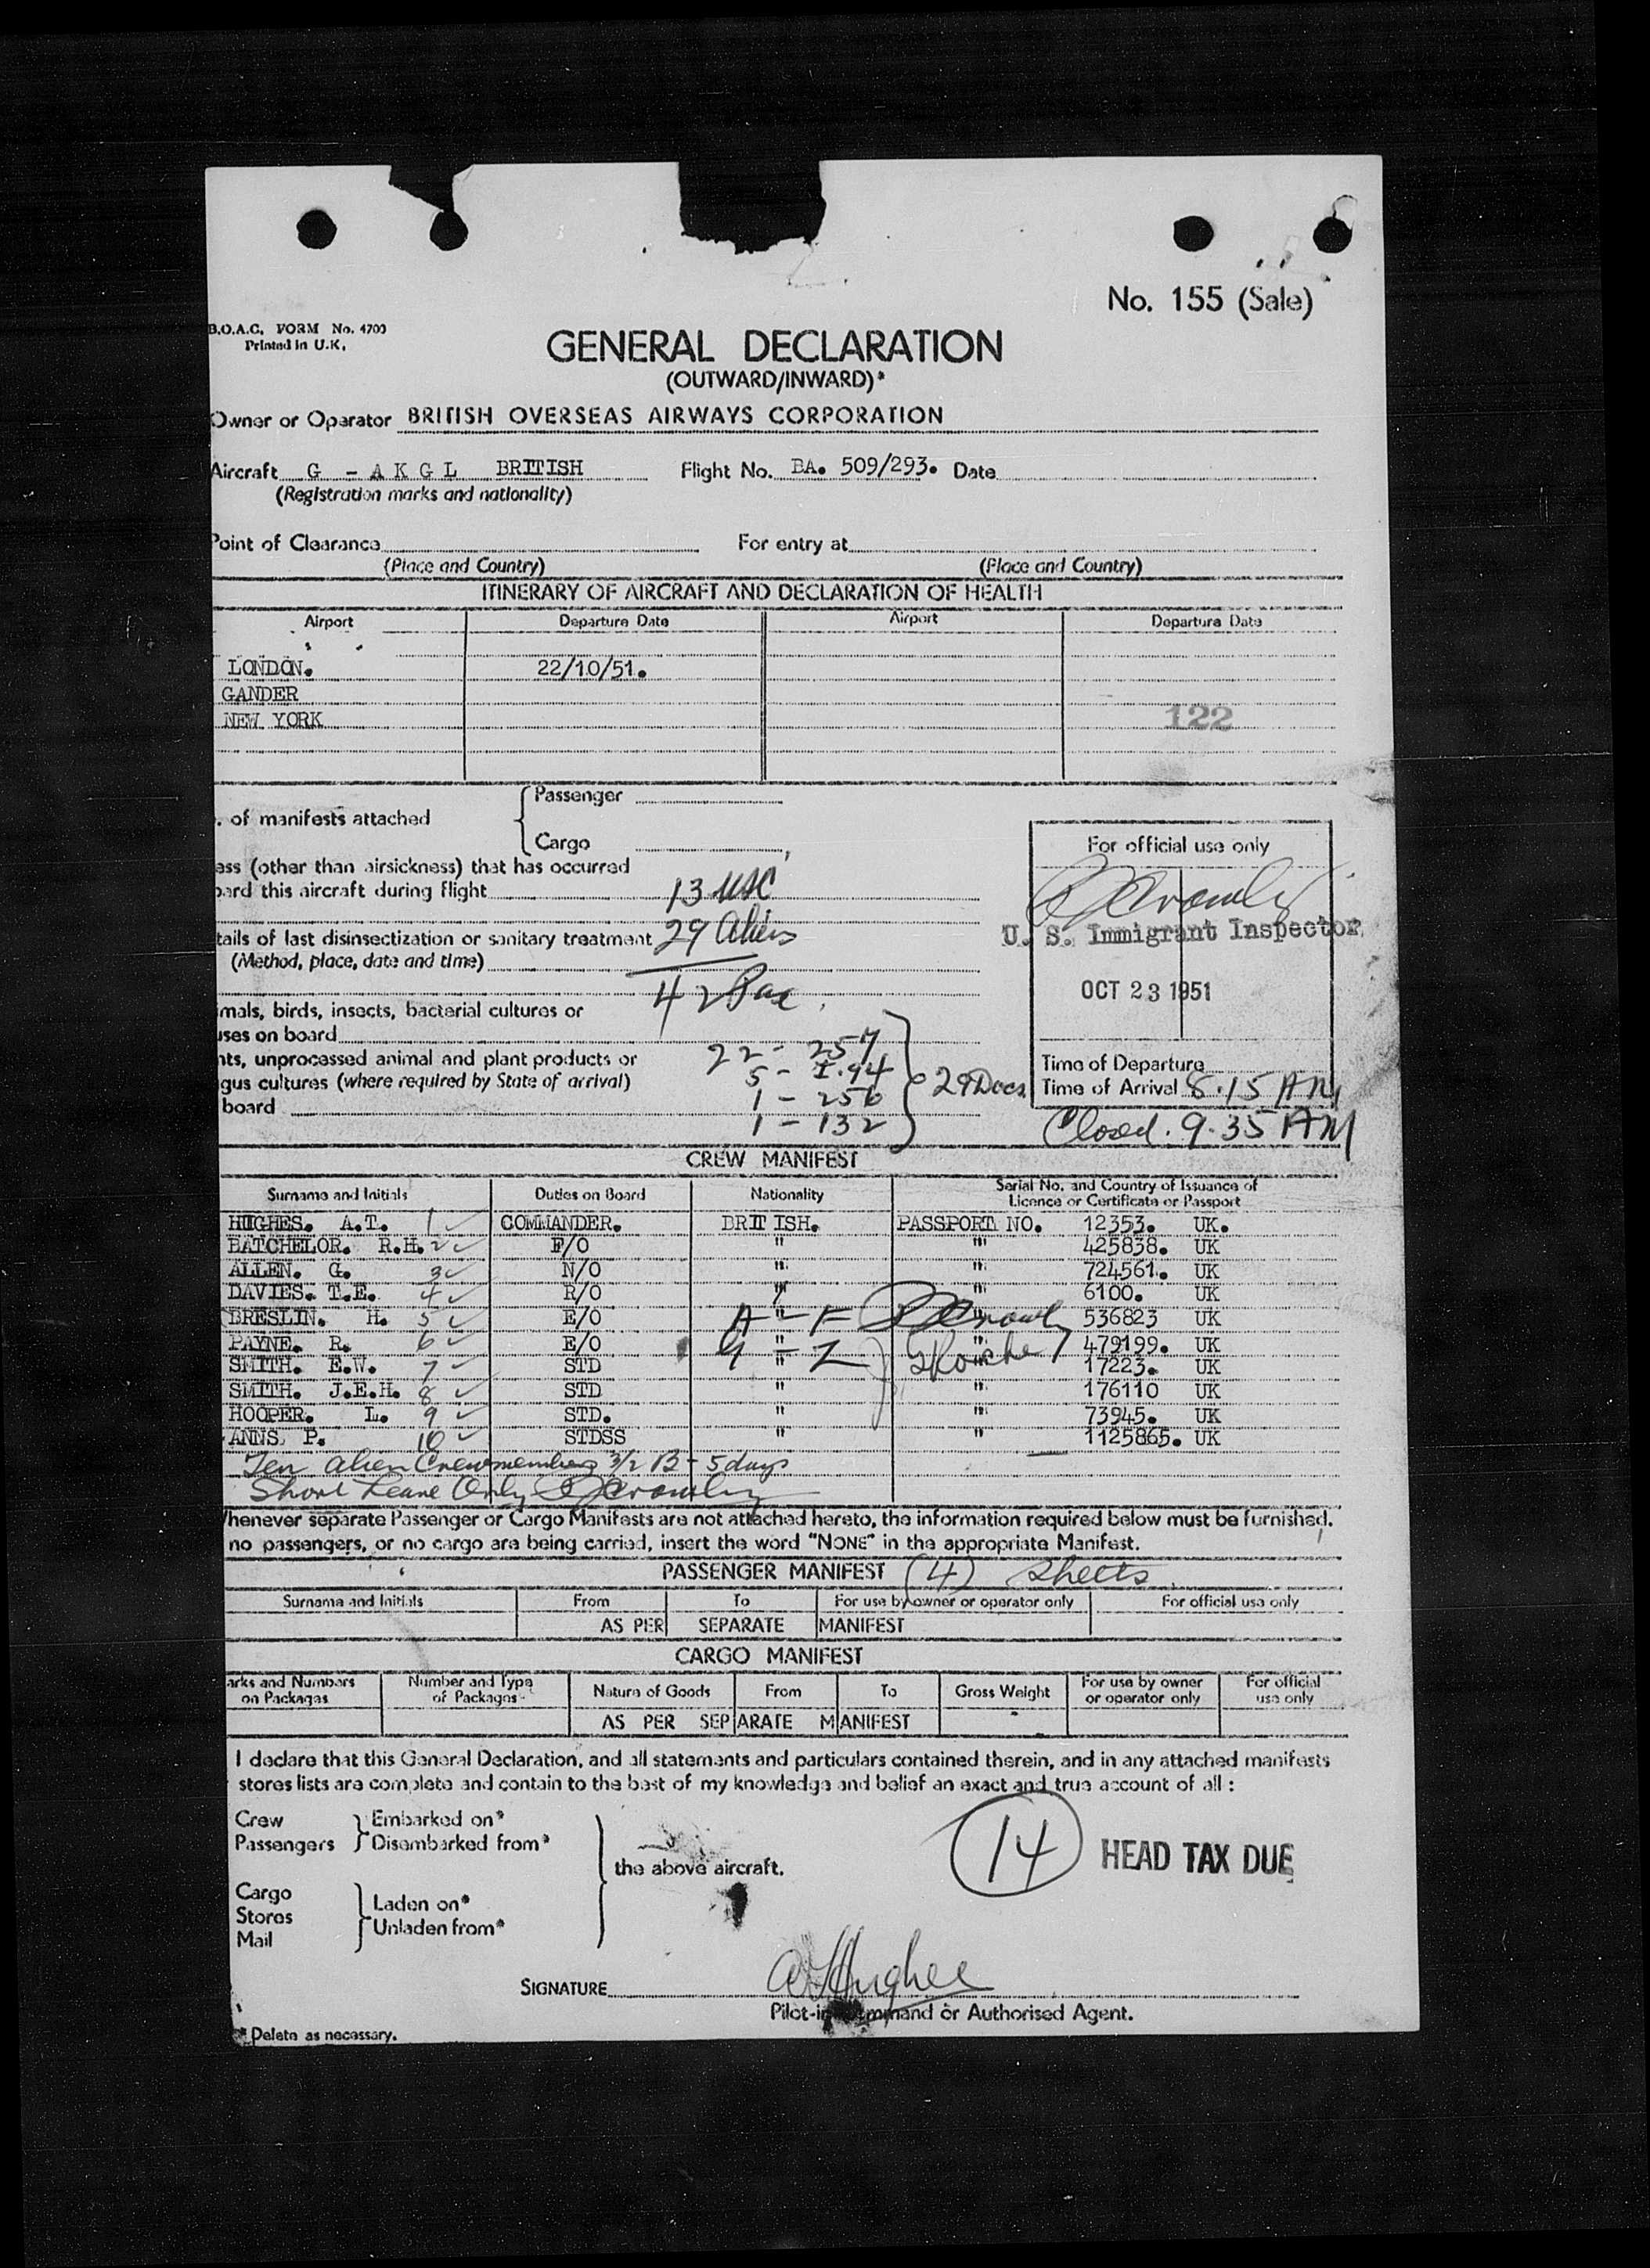 No. 155 (Sale)
B.O.A.C. FORM No. 4700
Printed in U.K.
GENERAL DECLARATION
(OUTWARD/INWARD)*
Owner or Operator BRITISH OVERSEAS AIRWAYS CORPORATION
Aircraft G - A K G L BRITISH Flight No. BA. 509/293. Date
(Registration marks and nationality)
Point of Clearance For entry at
(Place and Country) (Place and Country)
ITINERARY OF AIRCRAFT AND DECLARATION OF HEALTH
Airport Departure Date Airport Departure Date
LONDON. 22/10/51.
GANDER
NEW YORK 122
Passenger
. of manifests attached
Cargo
ess (other than airsickness) that has occurred
oard this aircraft during flight 13 USC
tails of last disinsectization or sanitary treatment 29 Aliens
(Method, place, date and time)
42 Pax
mals, birds, insects, bacterial cultures or
uses on board
nts, unprocessed animal and plant products or
gus cultures (where required by State of arrival)
board
22 - 257
5 - I.94
1 - 256
1 - 132
29 Docs
For official use only
U. S. Immigrant Inspector
OCT 23 1951
Time of Departure
Time of Arrival 8.15 AM
Closed. 9.35 AM
CREW MANIFEST
Surname and Initials Duties on Board Nationality Serial No. and Country of Issuance of
Licence or Certificate or Passport
HUGHES. A.T. 1 COMMANDER. BRITISH. PASSPORT NO. 12353. UK.
BATCHELOR. R.H. 2 F/O " " 425838. UK
ALLEN. G. 3 N/O " " 724561. UK
DAVIES. T.E. 4 R/O " " 6100. UK
BRESLIN. H. 5 E/O " " 536823 UK
PAYNE. R. 6 E/O " " 479199. UK
SMITH. E.W. 7 STD " " 17223. UK
SMITH. J.E.H. 8 STD " " 176110 UK
HOOPER. L. 9 STD. " " 73945. UK
ANNS P. 10 STDSS " " 1125865. UK
A - F
G - Z
Ten alien Crewmembers 3/2 B - 5 days
Shore Leave Only
Whenever separate Passenger or Cargo Manifests are not attached hereto, the information required below must be furnished.
no passengers, or no cargo are being carried, insert the word "NONE" in the appropriate Manifest.
PASSENGER MANIFEST (4) Sheets
Surname and Initials From To For use by owner or operator only For official use only
AS PER SEPARATE MANIFEST
CARGO MANIFEST
arks and Numbers on Packages Number and Type of Packages Nature of Goods From To Gross Weight For use by owner or operator only For official use only
AS PER SEPARATE MANIFEST
I declare that this General Declaration, and all statements and particulars contained therein, and in any attached manifests
stores lists are complete and contain to the best of my knowledge and belief an exact and true account of all :
Crew Embarked on*
Passengers Disembarked from*
the above aircraft.
Cargo
Stores Laden on*
Mail Unladen from*
14 HEAD TAX DUE
SIGNATURE A T Hughes
Pilot-in-Command or Authorised Agent.
* Delete as necessary.